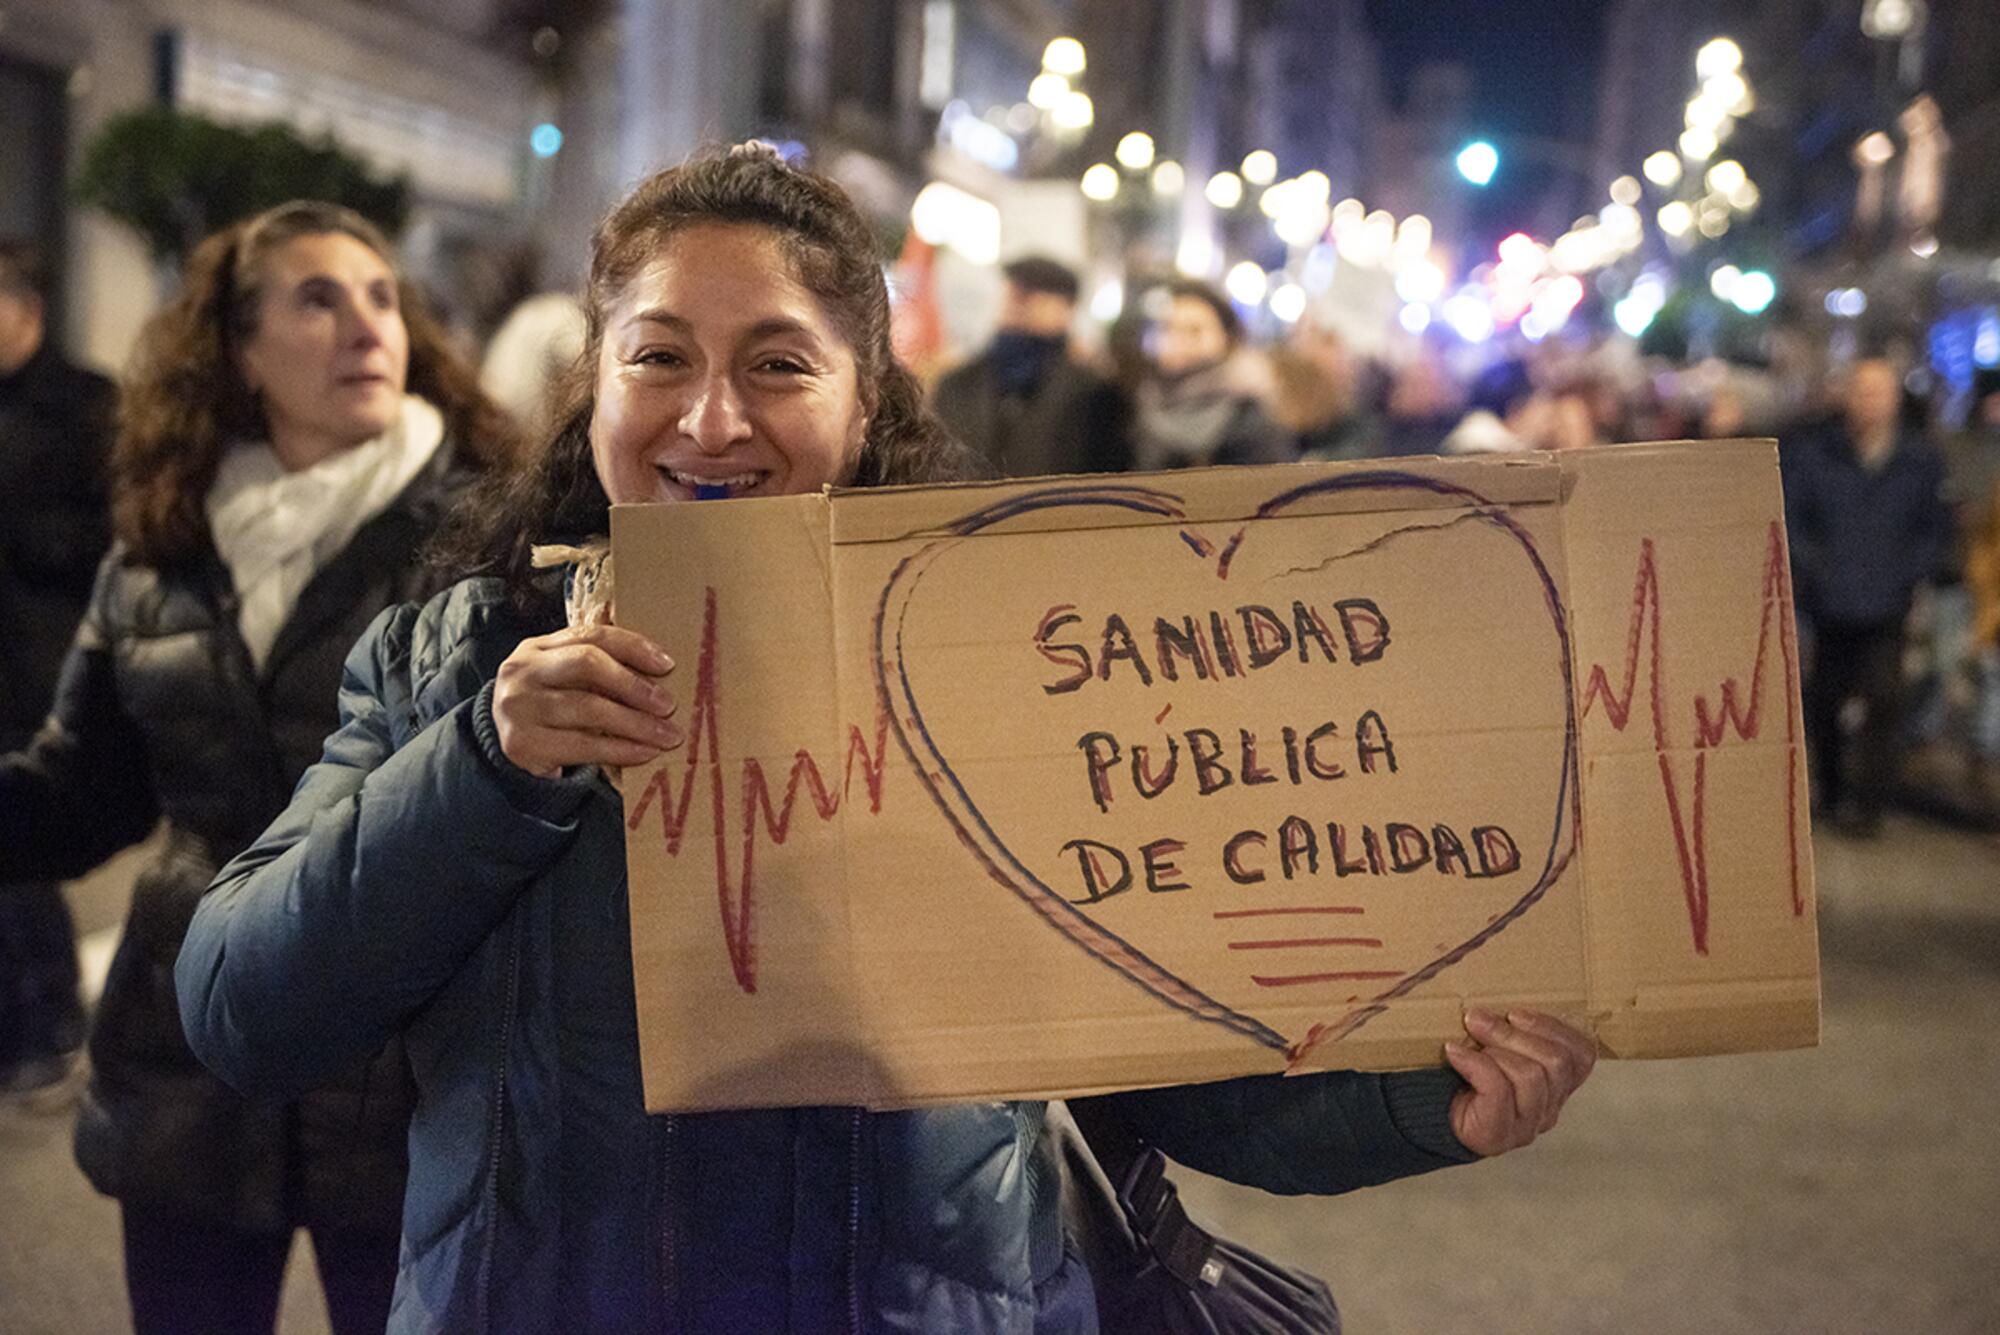 SANIDAD
PÚBLICA
DE CALIDAD